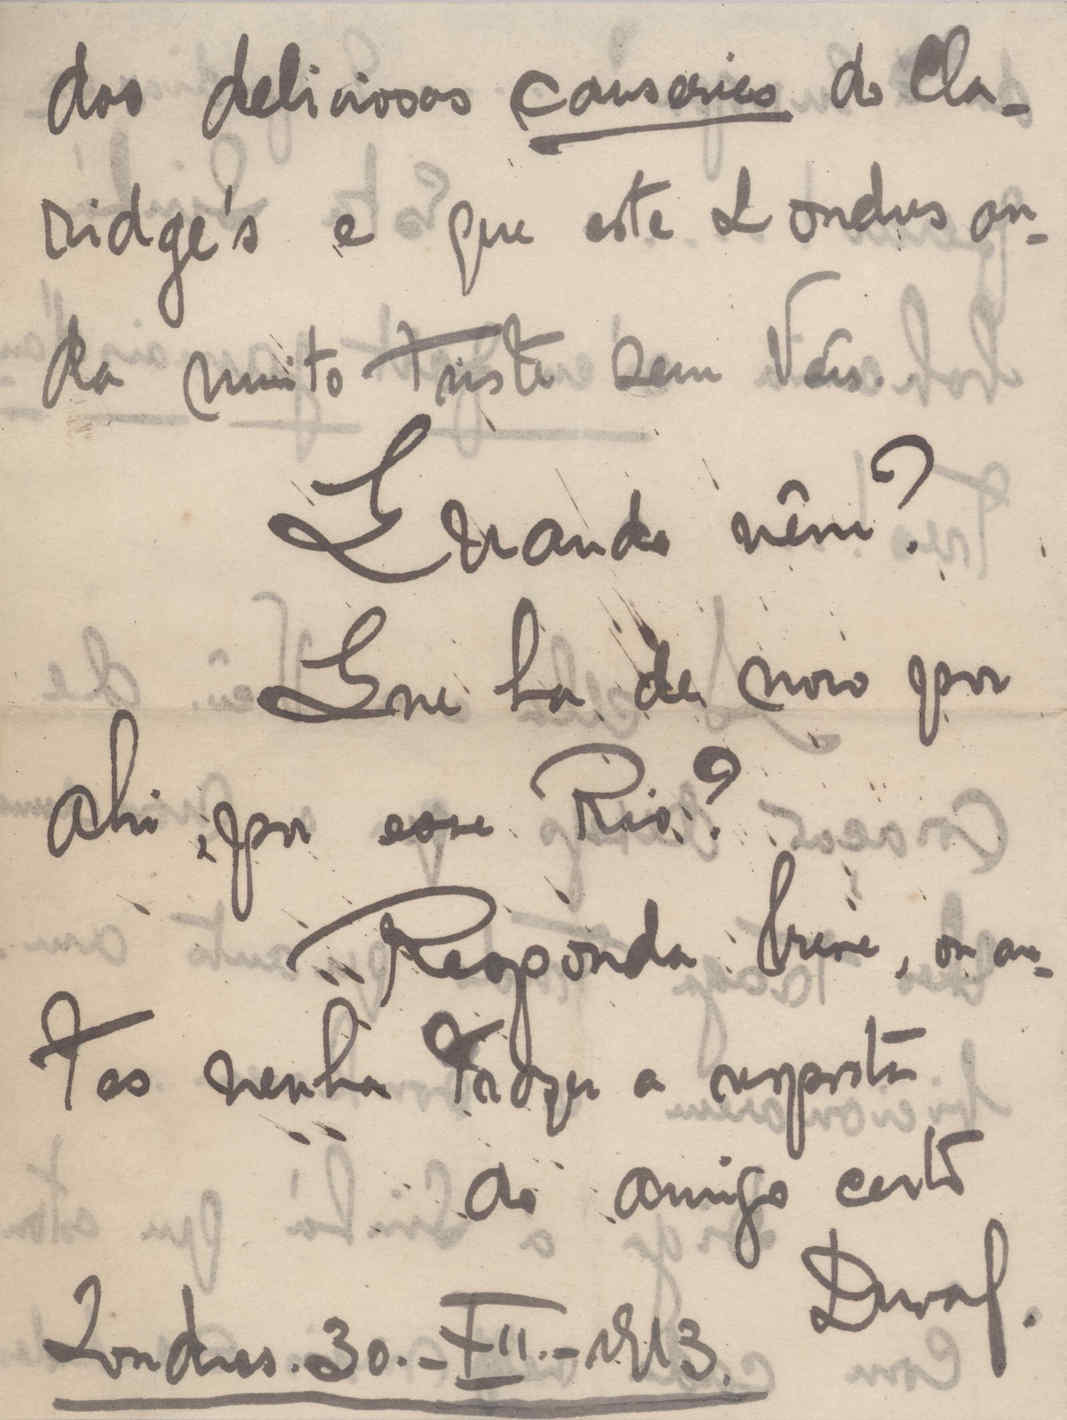 das deliciosas causeries do Cla-
ridge's e que este Londres an-
da muito triste sem Vcês.
Quando vêm?
Que ha de novo por
ahi, por esse Rio?
Responda breve, ou an-
tes venha trazer a resposta
ao amigo certo
Duval.
Londres. 30.-XII.-1913.